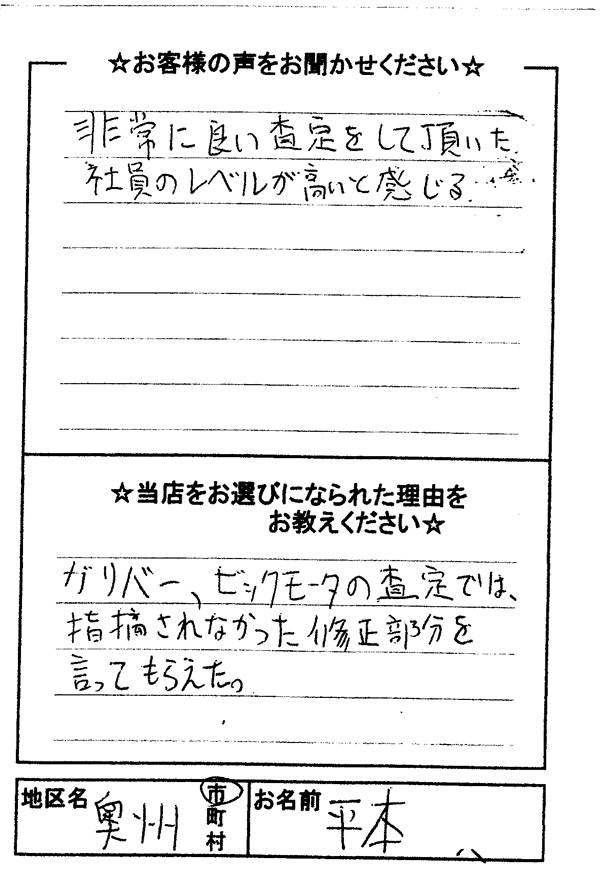 ☆お客様の声をお聞かせください☆
非常に良い査定をして頂いた。
社員のレベルが高いと感じる
☆当店をお選びになられた理由を
お教えください☆
ガリバー、ビックモータの査定では、
指摘されなかった修正部分を
言ってもらえた。
地区名 奥州 市 お名前 平本
町
村